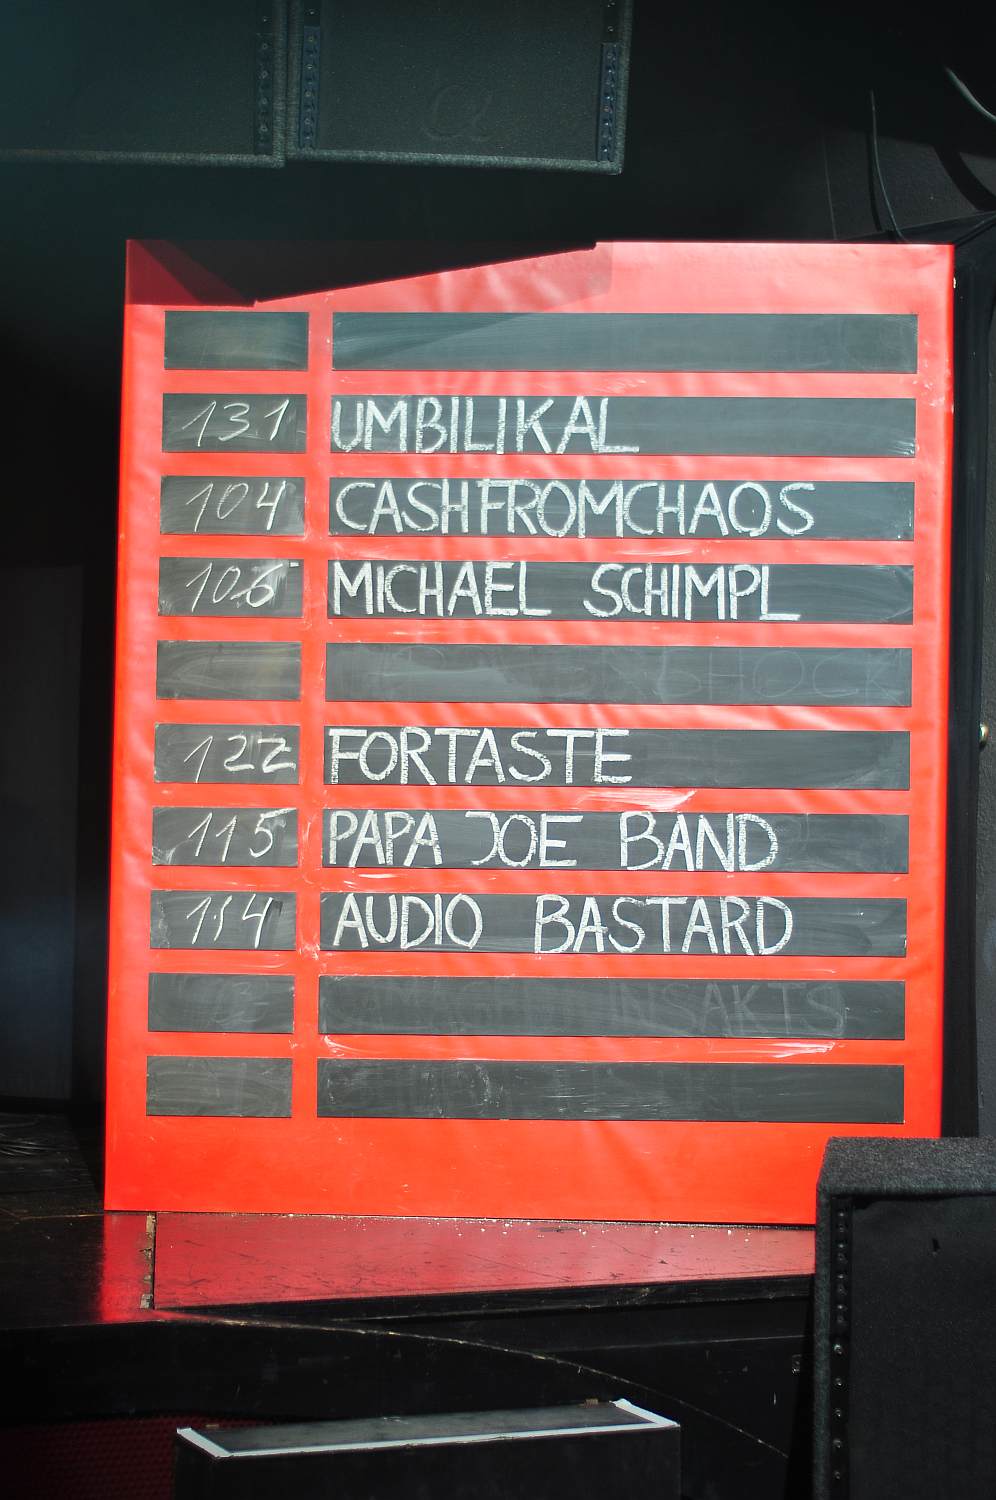 131 UMBILIKAL
104 CASHFROMCHAOS
106 MICHAEL SCHIMPL
SHOCK
122 FORTASTE
115 PAPA JOE BAND
114 AUDIO BASTARD